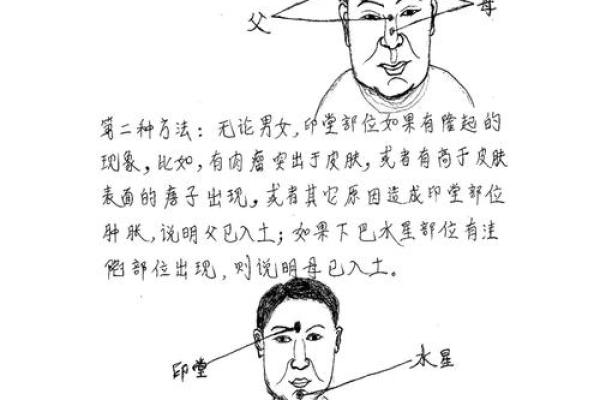 父 母
第二种方法：无论男女，印堂部位如果有隆起的
现象，比如，有肉瘤突出于皮肤，或者有高于皮肤
表面的痦子出现，或者其它原因造成印堂部位
肿胀，说明父已入土；如果下巴水星部位有洼
陷部位出现，则说明母已入土。
印堂 水星